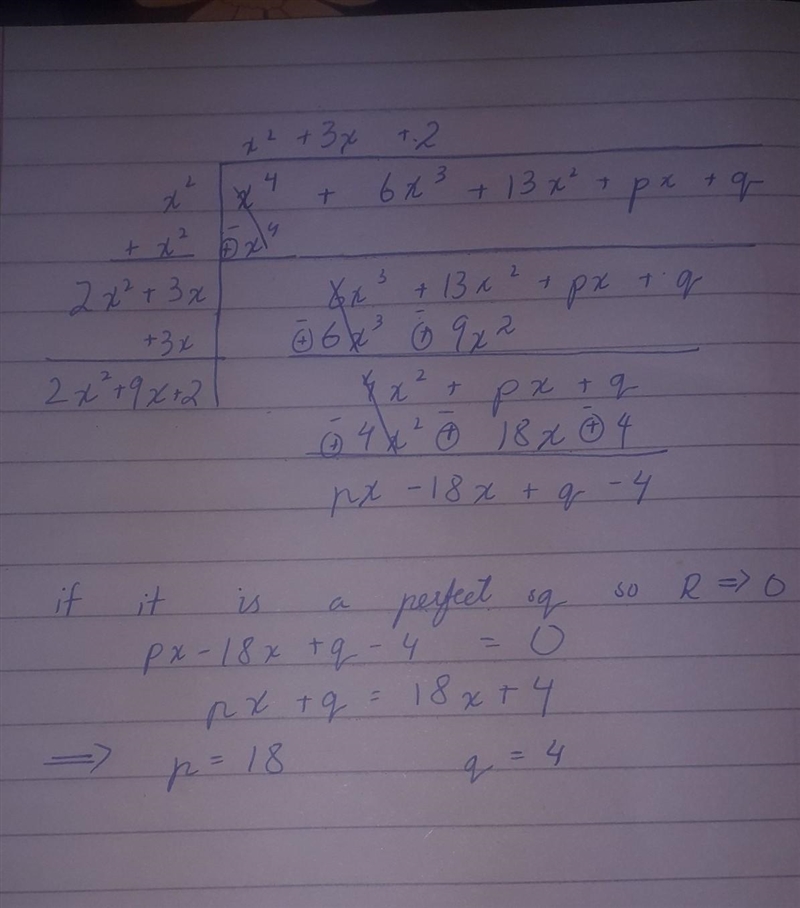 x² + 3x + 2
x² x⁴ + 6x³ + 13x² + px + q
+ x² ⊕ x⁴
2x² + 3x 6x³ + 13x² + px + q
+3x ⊕ 6x³ ⊕ 9x²
2x² + 9x + 2 4x² + px + q
⊕ 4x² ⊕ 18x ⊕ 4
px - 18x + q - 4
if it is a perfect sq so R => 0
px - 18x + q - 4 = 0
px + q = 18x + 4
=> p = 18 q = 4